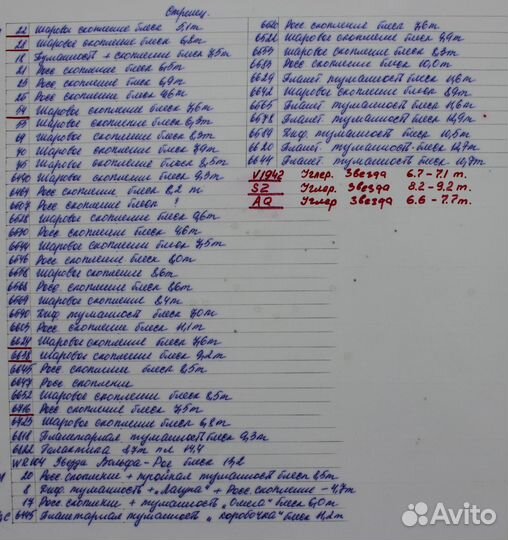 Стрелец.
22 Шаровое скопление блеск 5,1m
28 Шаровое скопление блеск 6,8m
18 Туманность + скопление блеск 7,5m
21 Росс скопление блеск 6,5m
23 Росс скопление блеск 6,9m
25 Росс скопление блеск 4,6m
54 Шаровое скопление блеск 7,6m
55 Шаровое скопление блеск 6,3m
69 Шаровое скопление блеск 8,3m
70 Шаровое скопление блеск 7,9m
75 Шаровое скопление блеск 8,5m
6440 Шаровое скопление блеск 9,3m
6469 Росс скопление блеск 8,2 m
6507 Росс скопление блеск ?
6558 Шаровое скопление блеск 8,6m
6530 Росс скопление блеск 4,6m
6544 Шаровое скопление блеск 7,5m
6546 Росс скопление блеск 8,0m
6558 Шаровое скопление блеск 8,6m
6568 Росс скопление блеск 8,6m
6569 Шаровое скопление блеск 8,4m
6590 Диф туманность блеск 7,0m
6603 Росс скопление блеск 11,1m
6624 Шаровое скопление блеск 7,6m
6638 Шаровое скопление блеск 9,2m
6645 Росс скопление блеск 8,5m
6647 Росс скопление
6652 Шаровое скопление блеск 8,5m
6716 Росс скопление блеск 7,5m
6723 Шаровое скопление блеск 6,8m
6818 Планетарная туманность блеск 9,3m
6822 Галактика 8,7m пл 14,4
WR104 Звезда Вольфа-Рае блеск 13,2
20 Росс скопление + тройная туманность блеск 8,5m
8 Диф туманность + "Лагуна" + Росс скопление - 4,7m
17 Росс скопление + туманность "Омега" блеск 6,0m
6445 Планетарная туманность "коробочка" блеск 11,2m
6520 Росс скопление блеск 7,6m
6522 Шаровое скопление блеск 9,9m
6553 Шаровое скопление блеск 8,3m
6583 Росс скопление блеск 10,0m
6629 Планет туманность блеск 11,6m
6642 Шаровое скопление блеск 8,9m
6565 Планет туманность блеск 11,6m
6578 Планет туманность блеск 12,9m
6589 Диф туманность блеск 10,5m
6620 Планет туманность блеск 12,7m
6644 Планет туманность блеск 10,7m
V1942 Углер. Звезда 6.7-7.1 m.
SZ Углер. Звезда 8.2-9.2 m.
AQ Углер. Звезда 6.6-7.7m.
Avito